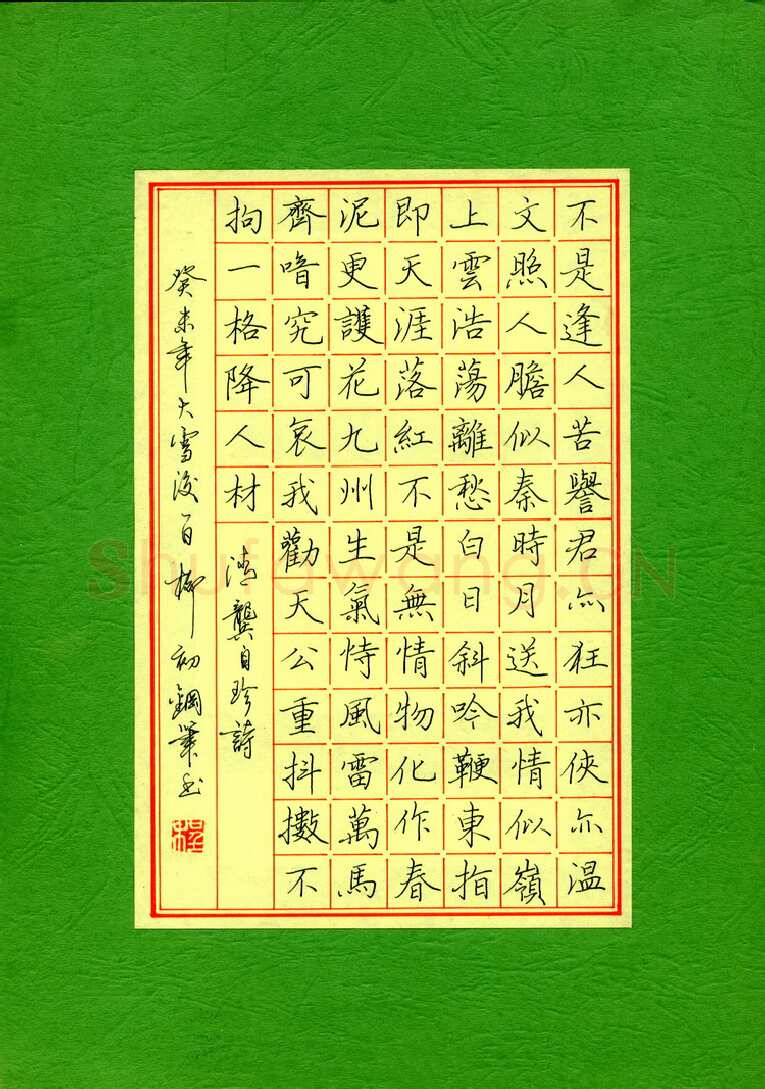 不是逢人苦譽君亦狂亦俠亦温
文照人膽似秦時月送我情似嶺
上雲浩蕩離愁白日斜吟鞭東指
即天涯落紅不是無情物化作春
泥更護花九州生氣恃風雷萬馬
齊喑究可哀我勸天公重抖擻不
拘一格降人材
清龔自珍詩
癸未年大雪後一百柳初鋼筆書
Shufawang.CN